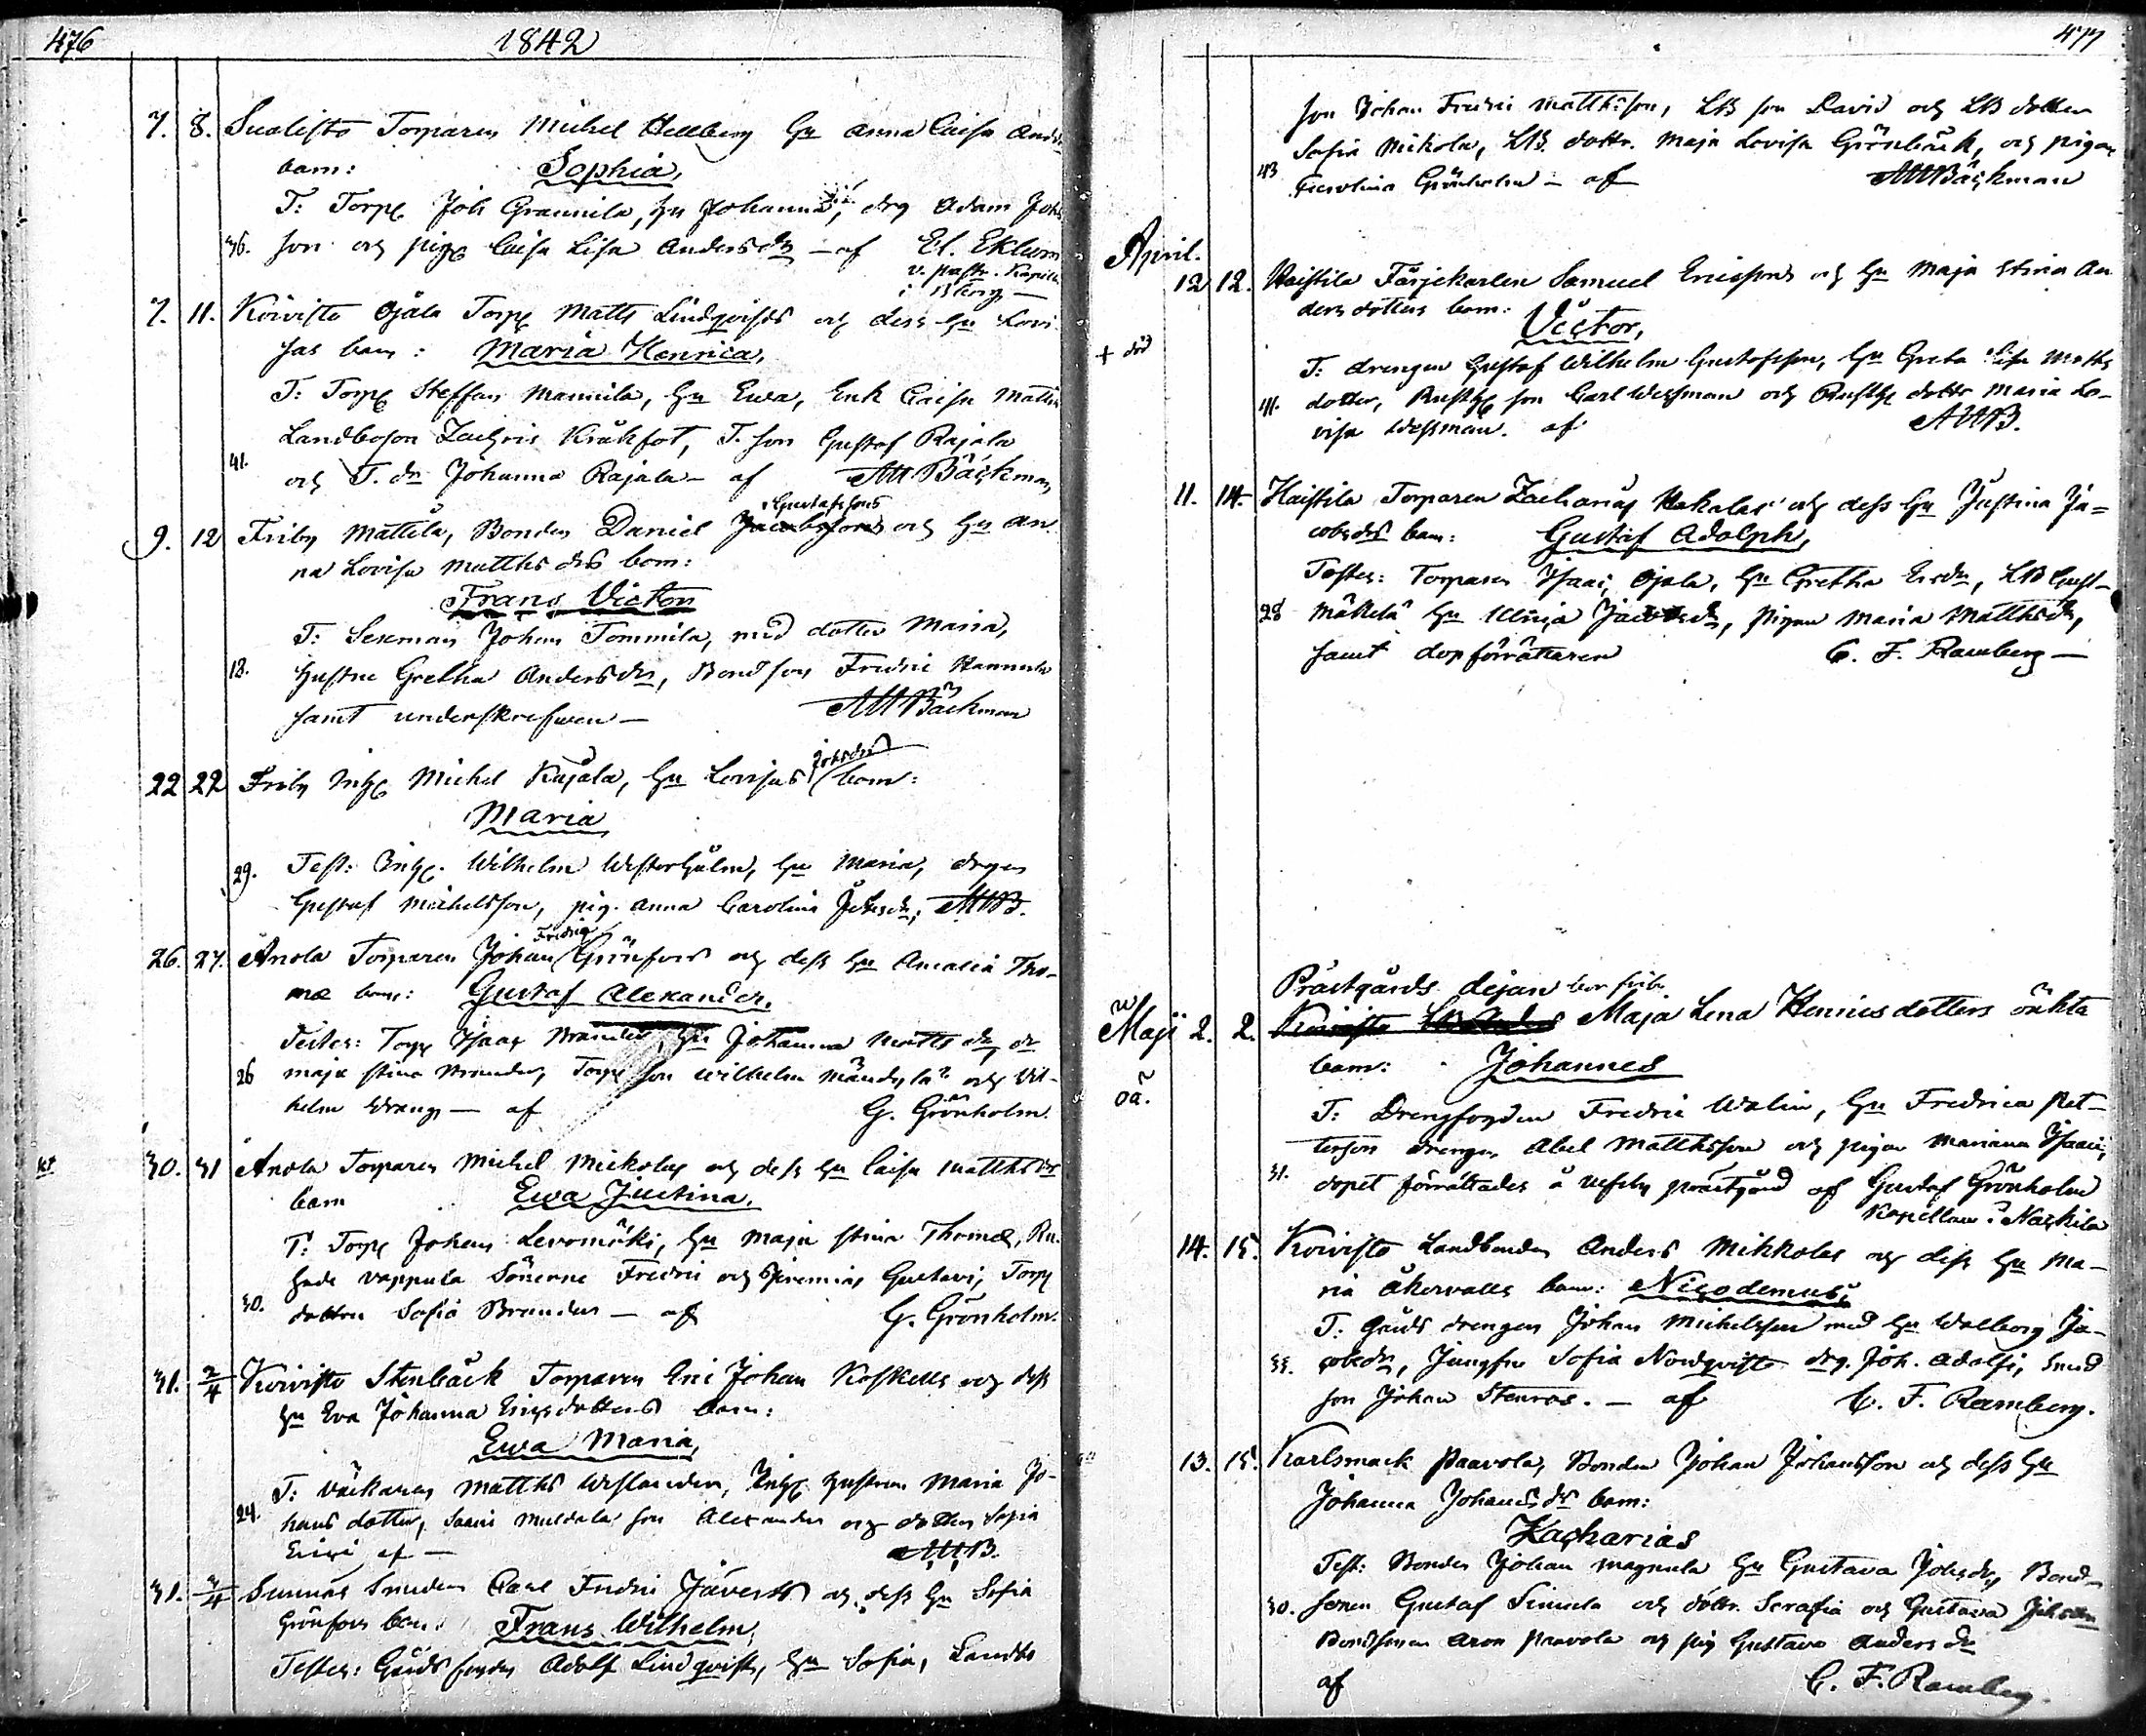 476
1842
7. 8. Torparen Michel Hellberg Hu Anna Caisa
barn: Sophia,
T: Torp Joh Grannila, Hu Johanna, drg Adam Joh
36. son och pig Caisa Lisa Andersdr – af El. Eklum
v. past.
7. 11. Koivisto Ojala Torp Matts Lindqvists och dess Hu Lovi
sas barn: Maria Henrica,
T: Torp Steffan Mannila, Hu Ewa, Enk Caisa
Landboson Kråkfot, T. son Gustaf Rajala
41. och T. dr Johanna Rajala – af AMBäckman
Gustafssons
9. 12 Friby Mattila, Bonden Daniel och Hu An
na Lovisa Matthsdrs barn:
Frans Victor
T: Sexman Johan Tommila, med dotter Maria,
18. hustru Gretha Andersdr, Bondson Fredric
samt underskrefwen – AMBäckman
Johsdrs
22 22 Friby Michel Rajala, Hu Lovisas barn:
Maria
29. Test: Wilhelm Westerholm, Hu Maria, drgen
Gustaf Michelsson, pig. Anna Carolina AMB.
Fredrig
26. 27. Anola Torparen Johan Grönfors och dess Hu Amalia Tho-
mæ barn: Gustaf Alexander.
Testes: Torp Isaac Brander, Hu Johanna Matts dr, dr
26 Maja Stina Brander, Torp son Wilhelm och Wil-
helm Wrang – af G. Grönholm.
30. 31 Anola Torparen Michel Mickolas och dess Hu Caisa Matthsdrs
barn Ewa Justina.
T: Torp Johan Levomäki, Hu Maja Stina Thomæ,
Vappula Sönerne Fredric och Jeremias Gustavi, Torp
30. dottren Sofia Brander – af G. Grönholm.
31. 2/4 Koivisto Stenbäck Torparen Eric Johan Koskells och dess
Hu Eva Johanna Ericsdotters barn:
Ewa Maria,
T: Matths Westlander, hustrun Maria Jo-
24. hans dotter, son Alexander och dottren Sofia
Erici af – AMB.
31. 3/4 Sunnäs Smeden Carl Fredric och dess Hu Sofia
Grönfors barn: Frans Wilhelm,
Testes: Gårds fogden Adolf Lindqvist, Hu Sofia, Landbo
477
son Johan Fredric Matthsson, LB son David och LB dotter
Sofia Mickola, LB. dottr. Maja Lovisa Grönbäck, och pigan
43 Carolina Grönholm – af AMBäckman
April.
12 12. Haistila Färjekarlen Samuel Ericssons och Hu Maja Stina An
dersdotters barn: Victor,
+ död
T: drengen Gustaf Wilhelm Gustafsson, Hu Greta Lisa Matths
41. dotter, Rusth son Carl Wessman och Rusth dottr Maria Lo-
visa Wessman. af AMB.
11. 14. Haistila Torparen Zacharias Hakalas och dess Hu Justina Ja=
cobsdrs barn: Gustaf Adolph,
Testes: Torparen Isaac Ojala, Hu Gretha Ersdr, LB Gust-
28 Mäkelä Hu Ulrica Jacobsdr, pigan Maria Matthsdr,
samt dopförrättaren C. F. Ramberg –
Prästgårds dejan
Maji 2. 2. Maja Lena Henricsdotters oäkta
barn: Johannes
oä.
T: Drengfogden Fredric Walin, Hu Fredrica Pet-
terson drengen Abel Matthsson och pigan Mariana Isaaci,
31. dopet förrättades å Ulfsby prästgård af Gustaf Grönholm
Kapellan i Nackila
14. 15. Koivisto Landbonden Anders Mikkolas och dess Hu Ma-
ria Åkervalls barn: Nicodemus,
T: Gårds drengen Johan Michelsson med Hu Walborg Ja-
33. cobsdr, Jungfru Sofia Nordqvist drg. Joh. Adolfi, Smed
son Johan Stenros. – af C. F. Ramberg.
13. 15. Karlsmark Paavola, Bonden Johan Johansson och dess Hu
Johanna Johansdrs barn:
Zacharias
Test: Bonden Johan Magnula Hu Gustava Johsdr, Bond-
30. sonen Gustaf Simula och döttr. Serafia och Gustava
Bondsonen Aron Paavola och pig Gustava Andersdr
af C. F. Ramberg.